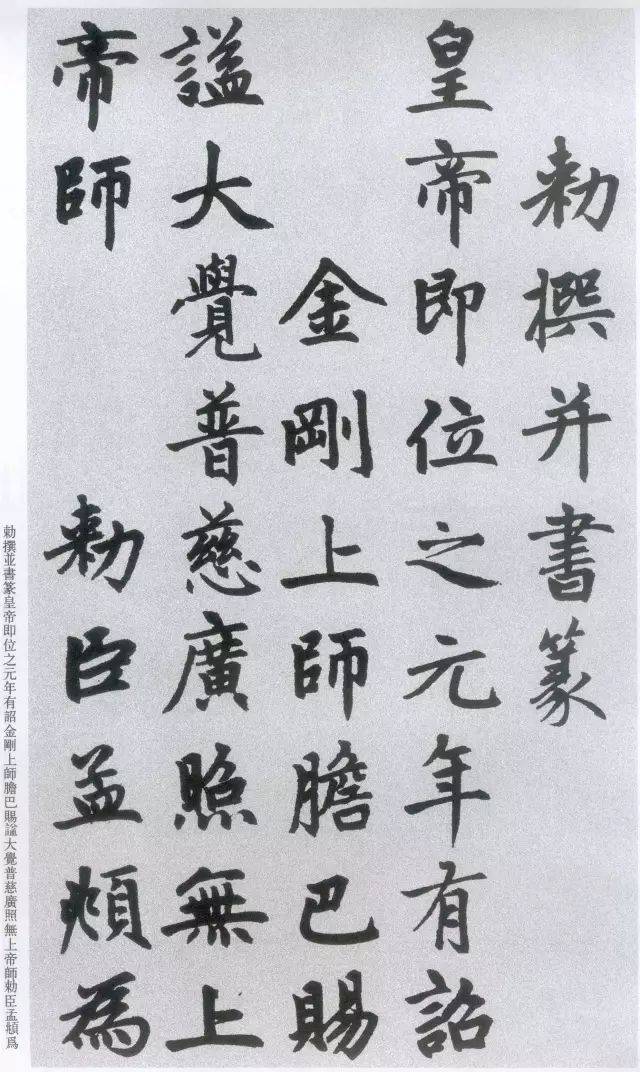 勅撰并書篆
皇帝即位之元年有詔
金剛上師膽巴賜
謚大覺普慈廣照無上
帝師勅臣孟頫為
勅撰並書篆皇帝即位之元年有詔金剛上師膽巴賜謚大覺普慈廣照無上帝師勅臣孟頫爲